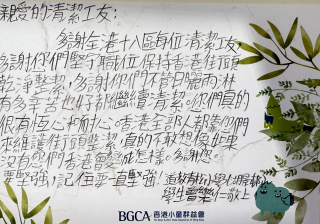 親愛的清潔工友:
多謝全港十八區每位清潔工友,
多謝你們堅守職位保持香港街頭
乾淨整潔,多謝你們不管日曬雨淋
有多辛苦也好都繼續清潔。你們真的
很有恆心和耐心。香港全部人都靠你們
來維護街頭整潔,真的不敢想像如果
沒有你們香港會變成怎樣。多謝您。
要堅強,記住要一直堅強!
學生曾樂仁敬上
BGCA 香港小童群益會